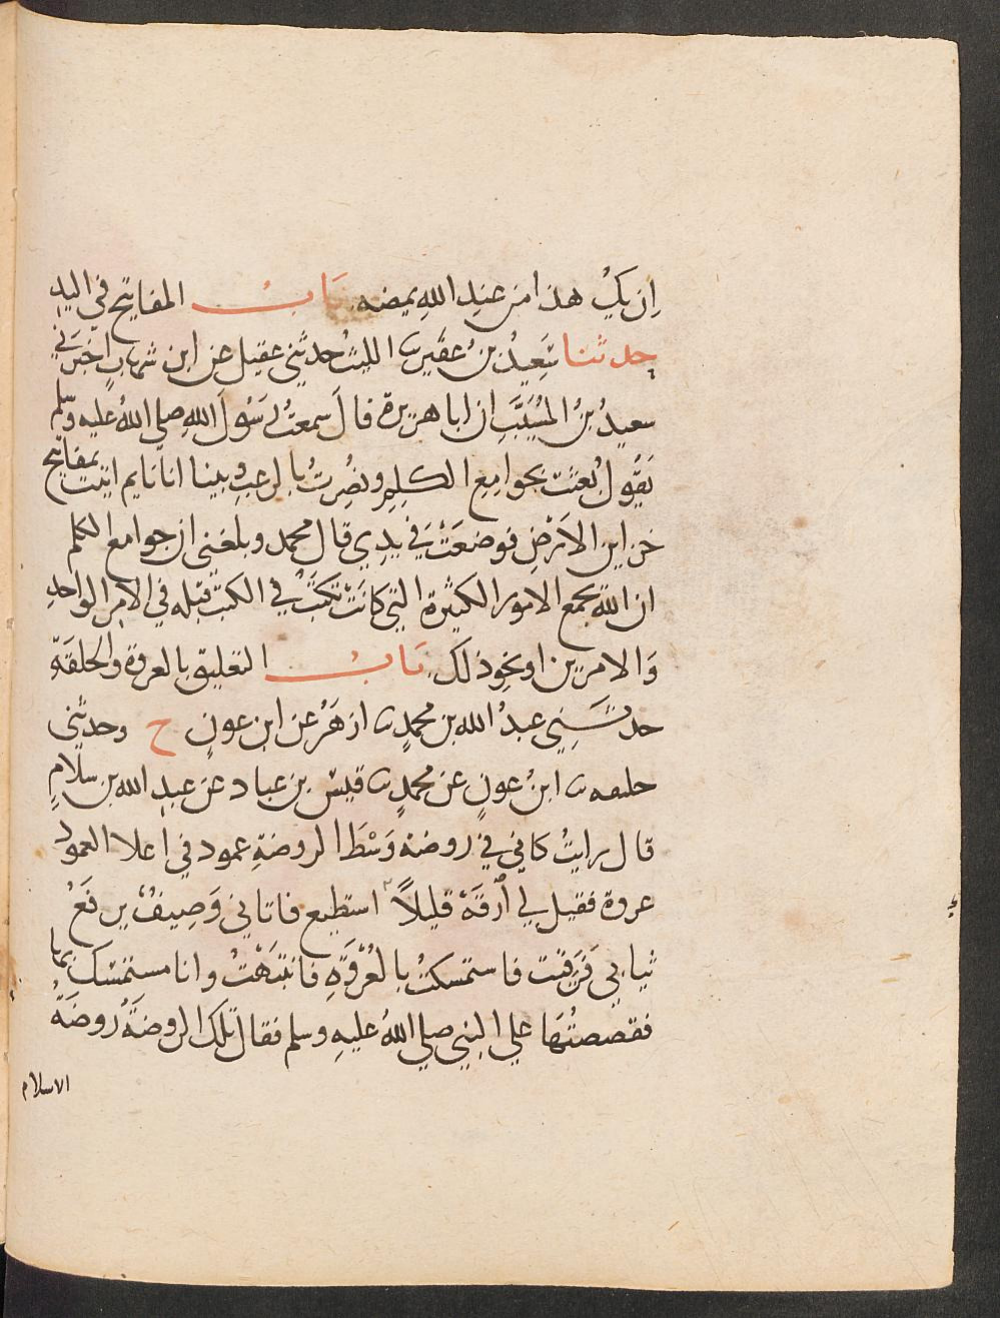 اِن يَكُ هذا من عندِ اللهِ يمضه بَابُ المفاتيح في اليدِ
حدثنا سَعِيدُ بنُ عُفَيرٍ ثنا الليثُ حدثني عقيل عن ابن شهابٍ اخبَرَني
سعيدُ بنُ المُسَيَّبِ ان ابا هريرة قال سمعتُ رَسُولَ اللهِ صلى اللهُ عليه وسلم
يَقُولُ بُعثتُ بجوامِعِ الكَلِمِ ونُصِرتُ بالرعبِ وبينا انا نايم اتيت بمفاتيح
خزاين الاَرْضِ فوضعَتْ في يدِي قال محمد وبلغني ان جوامع الكلم
ان الله يجمع الامور الكثيرة التي كانَتْ تكتَبُ في الكتب قبله في الامر الواحدِ
وَالامرين او نحوِ ذلك بَابُ التعليق بالعروة والحلقَةِ
حدثَنِي عبدُ الله بن محمدٍ ثنا ازهَرُ عن ابن عونٍ ح وحدثني
خليفه ثنا ابنُ عونٍ عن محمدٍ ثنا قيسُ بن عباد عن عبدِ الله بن سلامٍ
قال رايتُ كاني في روضة وَسْطَ الروضةِ عمود في اعلا العمود
عروة فقيل لي اَرقَهْ قليلاً استطيع فاتاني وَصِيفٌ يرفَعُ
ثيابي فَرَقيت فاستمسكتُ بالعُرْوَةِ فانتبَهْتُ وانا مستمسك بها
فقصصتُهَا علي النبي صلي اللهُ عليهِ وسلم فقال تلك الروضَةُ روضَةُ
الاسلام